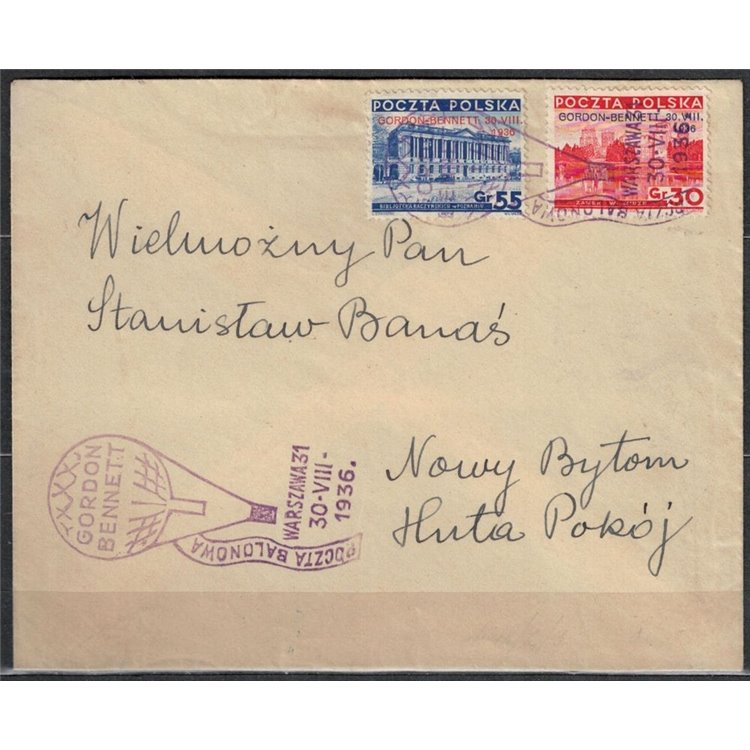 POCZTA POLSKA
GORDON-BENNETT 30.VIII.
1936
Gr 55
BIBLJOTEKA RACZYŃSKICH W POZNANIU
POCZTA POLSKA
GORDON-BENNETT 30.VIII.
1936
Gr 30
WARSZAWA 31
30-VIII-
1936.
POCZTA BALONOWA
Wielmożny Pan
Stanisław Banaś
Nowy Bytom
Huta Pokój
XXXX
GORDON
BENNETT
WARSZAWA 31
30-VIII-
1936.
POCZTA BALONOWA